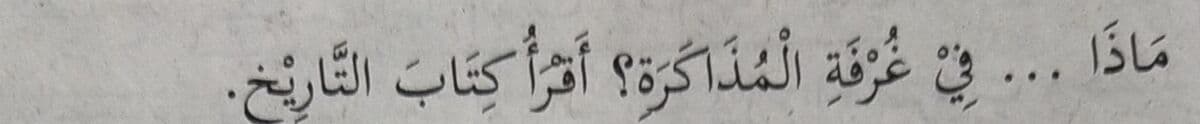 مَاذَا ... فِيْ غُرْفَةِ الْمُذَاكَرَةِ؟ أَقْرَأُ كِتَابَ التَّارِيْخِ.